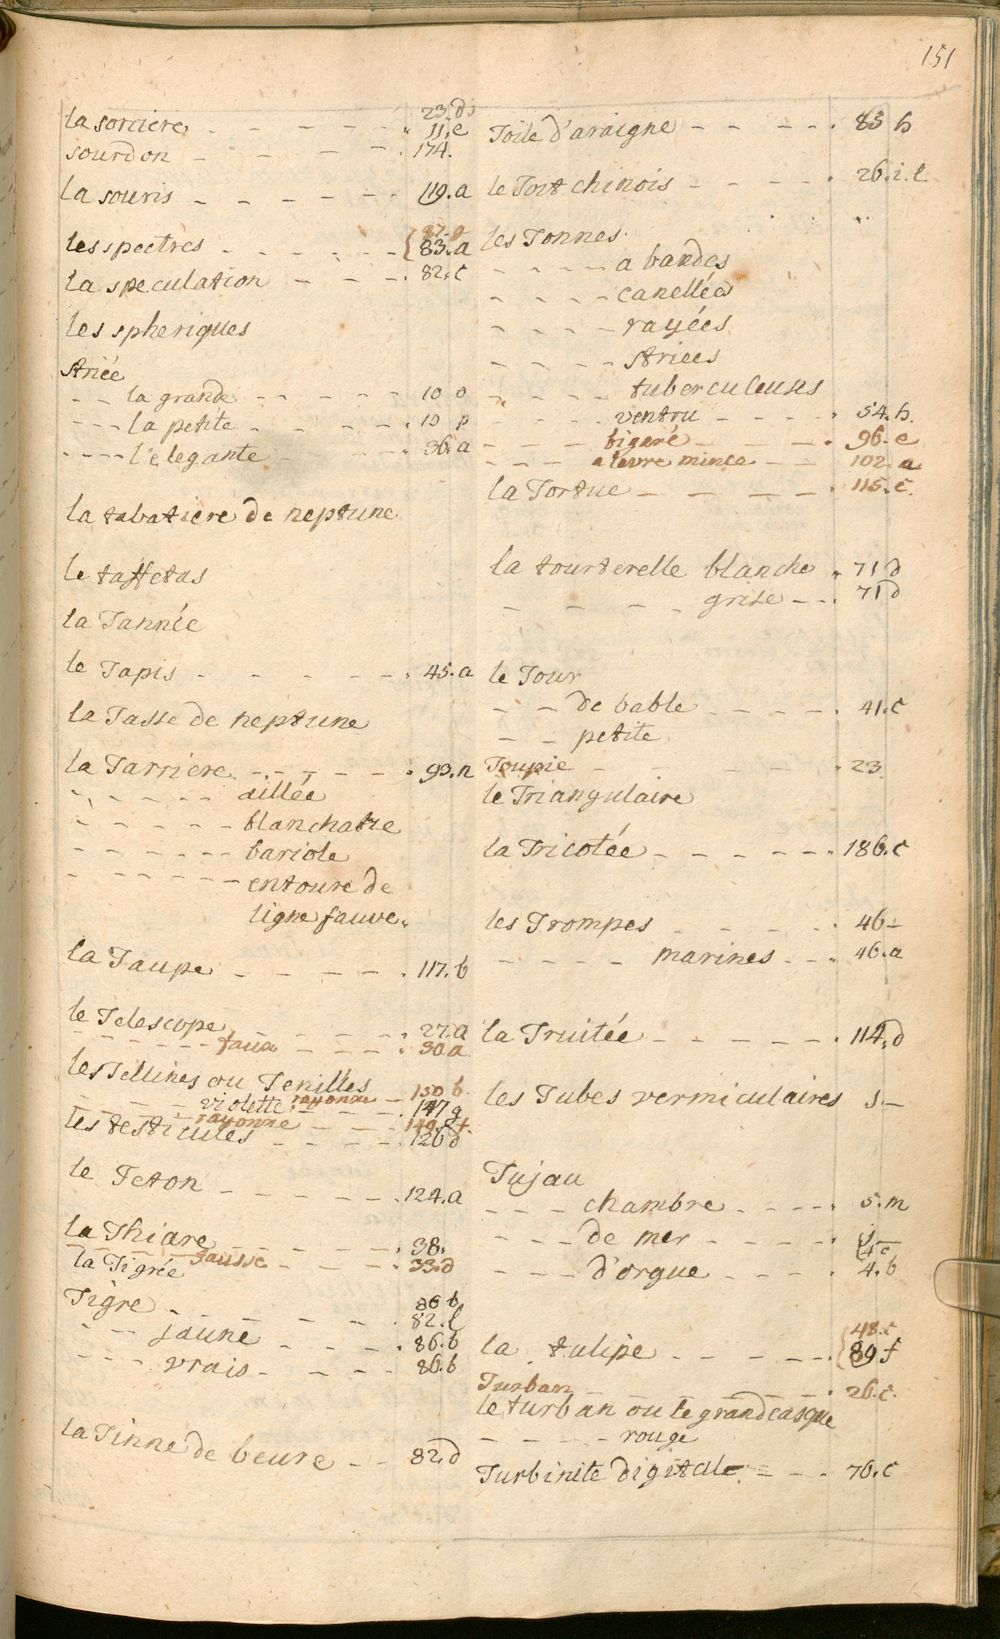 151
23.d
la sorciere - - - - - - 11.e
sourdon - - - - - 174.
la souris - - - - - - 119.a
87.g
les spectres - - - - - 83.a
la speculation - - - 82.c
les spheriques
striée
- - la grande - - - - - 10 o
- - - la petite - - - - - 10 p
- - - - l'elegante - - - 36.a
la tabatiere de neptune
le taffetas
la Tannée
le Tapis - - - - - - 45.a
la Tasse de neptune
la Tarriere - - - - - 90.n
- - - - - aillée
- - - - - - blanchatre
- - - - - - bariole
- - - - - - entoure de
ligne fauve.
la Taupe - - - - - 117.b
le Telescope - - - - - 27.a
- - - - - faux - - - - 30.a
les Tellines ou Tenilles
- - - - rayonne - 150 b.
- - - - violette - - - - 147 g
- - - - rayonne - - - 149.
les testicules - - - - 126 d
le Teton - - - - - - 124.a
la Thiare - - - - - - 38.
- - - - fausse - - - - 33.d
la Tigrée
86 b
Tigre - - - - - - 82.l
- - - jaune - - - - 86.b
- - - vrais - - - - 86.b
la Tinne de beure - - 82.d
Toile d'araigne - - - - - 83 h
le Tort chinois - - - - - 26.i.l.
les Tonnes.
- - - - a bandes
- - - - canellées
- - - - rayées
- - - - striees
- - - - tuberculeuses
- - - - ventru - - - - 54.h.
- - - - bigaré - - - - 96.e
- - - a levre mince - - 102.a
la Tortue - - - - - - 115.c.
la tourterelle blanche 71 d
- - - - - grise - - - 71 d
le Tour
- - de bable - - - - 41.c
- - petite.
Toupie - - - - - - 23.
le Triangulaire
la Tricotée - - - - - - 186.c
les Trompes - - - - - 46 -
- - - - - marines - - - 46.a
la Truitée - - - - - - 114.d
les Tubes vermiculaires 3. -
Tujau
- - - chambre - - - - 5.m
- - - de mer - - - - -
4 c
- - - d'orgue - - - - 4.b
48.c
la tulipe - - - - - 89 f
Turban - - - - - - 26.c.
le turban ou le grand casque
- - - - - rouge
Turbinite digitale - - - 76.c